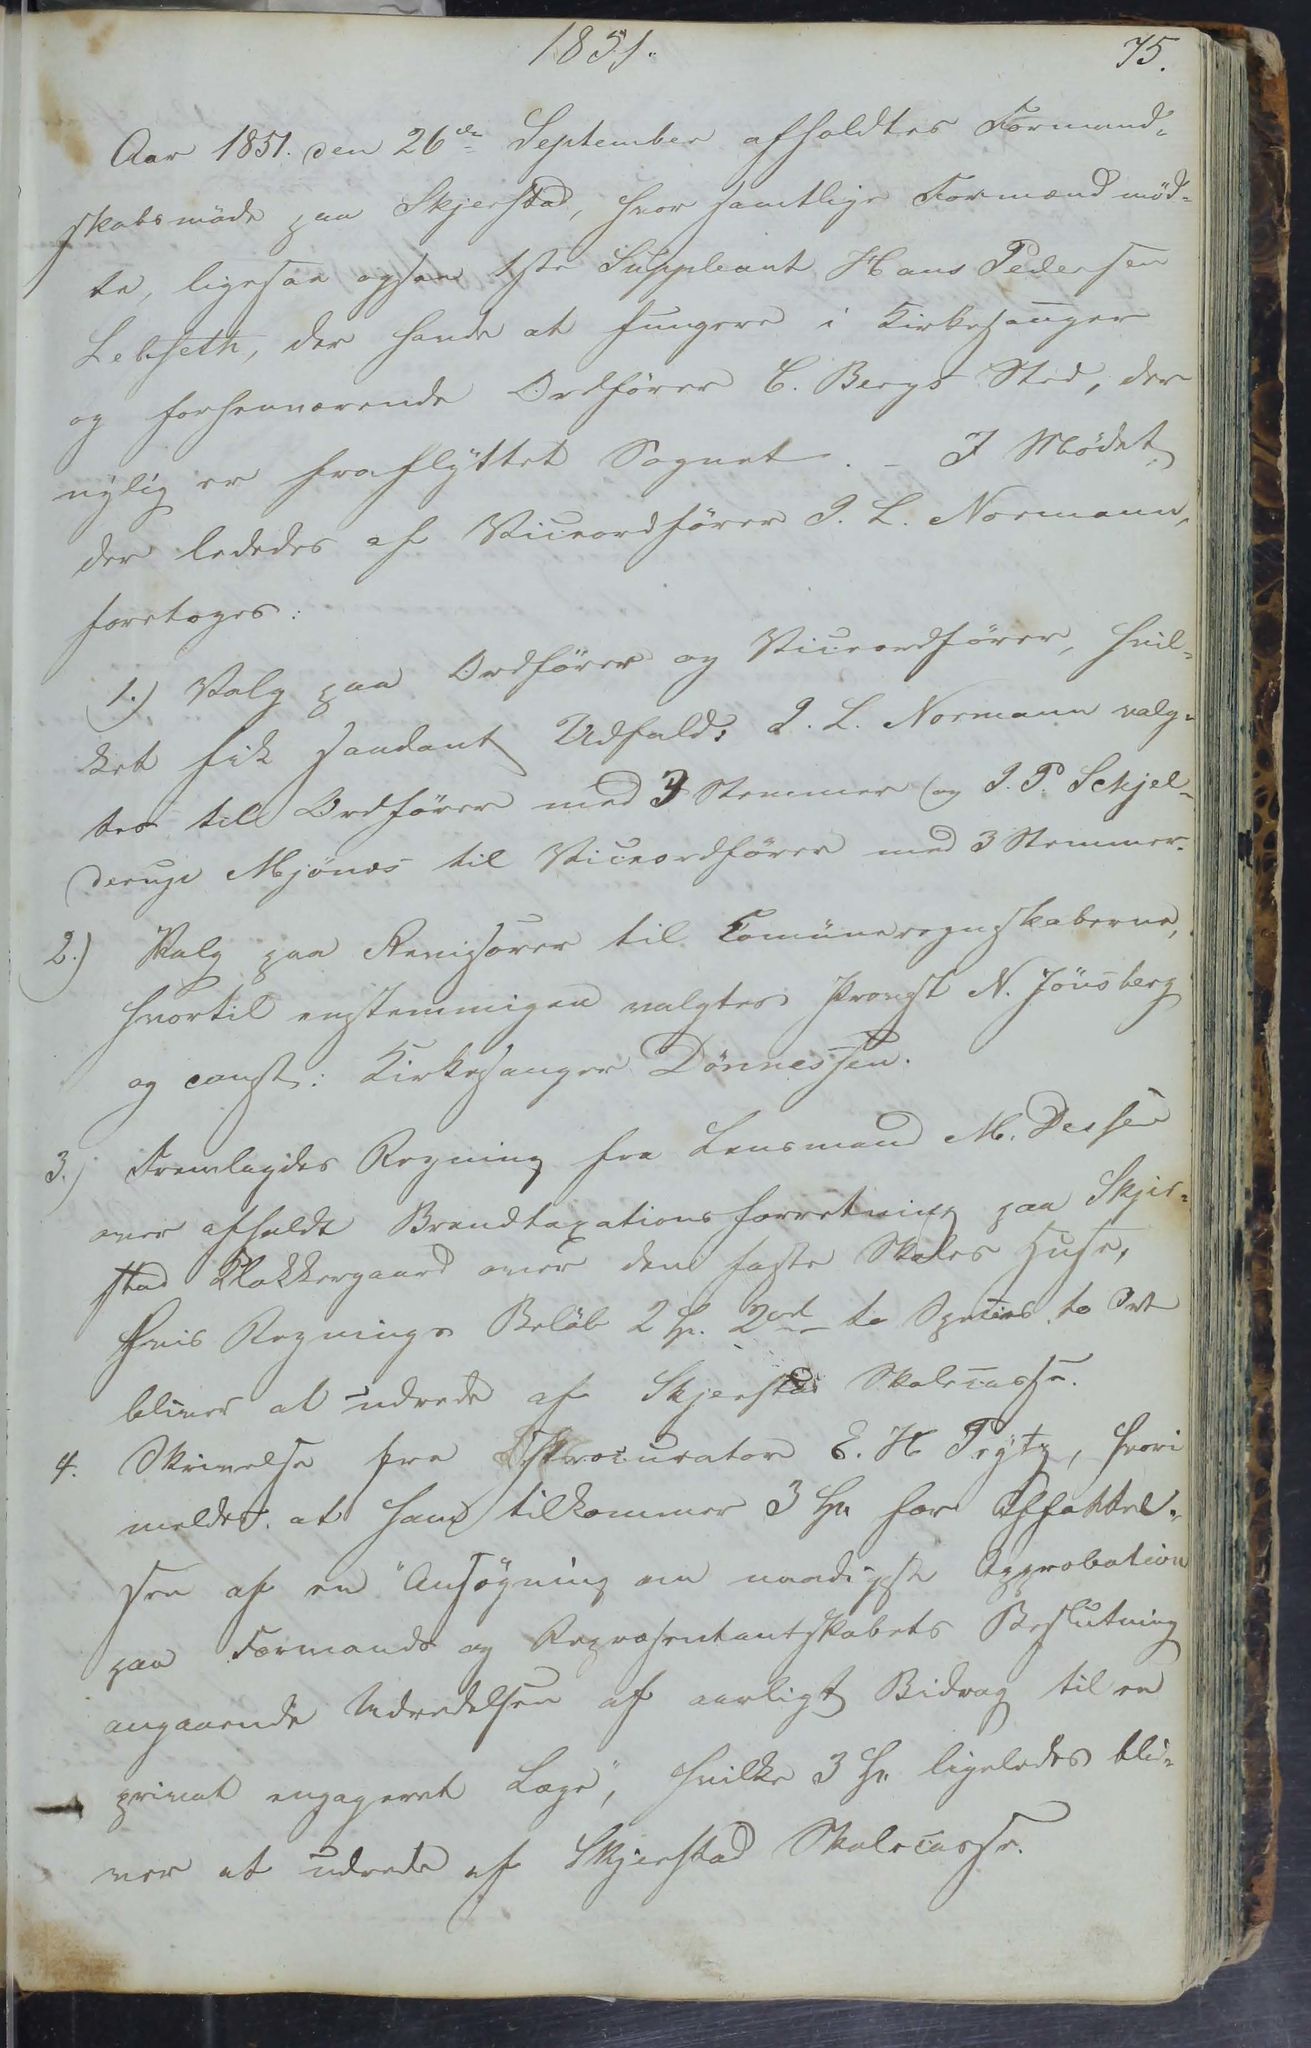 1851.
75.
Aar 1851. den 26de September afholdtes Formand-
skabsmöde paa Skjerstad, hvor samtlige Formænd möd-
te, ligesaa ogsaa 1ste Suppleant Hans Pedersen
Lebseth, der havde at fungere i Kirkesanger
og forhenværende Ordförer C. Bergs Sted, der
nylig er fraflyttet Sognet. - I Mödet,
der lededes af Viceordförer J. L. Normann,
foretoges:
1.) Valg paa Ordförer og Viceordförer, hvil-
ket fik saadant Udfald: J. L. Normann valg-
tes til Ordförer med 3 Stemmer og J. P. Schjel-
derup Mjönæs til Viceordförer med 3 Stemmer.
2.) Valg paa Revisorer til Comüneregnskaberne,
hvortil enstemmigen valgtes Provst N. Jönsberg
og const: Kirkesanger Dönnessen.
3.) Fremlagdes Regning fra Lensmand M.
over afholdt Brandtaxationsforretning paa Skjer-
stad Klokkergaard over den faste Skoles Huse,
hvis Regnings Belöb 2 Sp. 2 ort to Species to Ort
bliver at udrede af Skjerstad Skolecasse.
4. Skrivelse fra Procurator E. H Prytz, hvori
meldes at ham tilkommer 3 Sp. for Affattel-
sen af en "Ansögning om naadigste Approbation
paa Formands og Repræsentantskabets Beslutning
angaaende Udredelsen af aarligt Bidrag til en
privat engageret Læge", hvilke 3 Sp. ligeledes bli-
ver at udrede af Skjerstad Skolecasse.